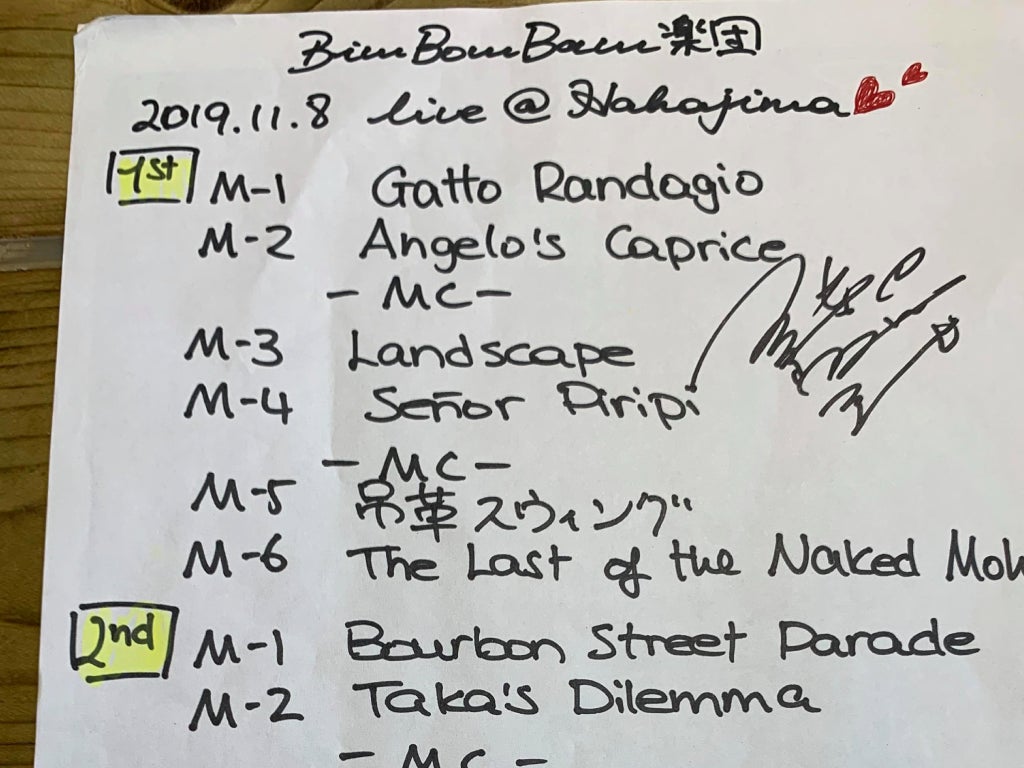 BimBomBam楽団
2019.11.8 live @ Hakajima
1st M-1 Gatto Randagio
M-2 Angelo's Caprice
- MC -
M-3 Landscape
M-4 Señor Piripi
- MC -
M-5 吊革スウィング
M-6 The Last of the Naked Moh
2nd M-1 Bourbon Street Parade
M-2 Taka's Dilemma
- MC -